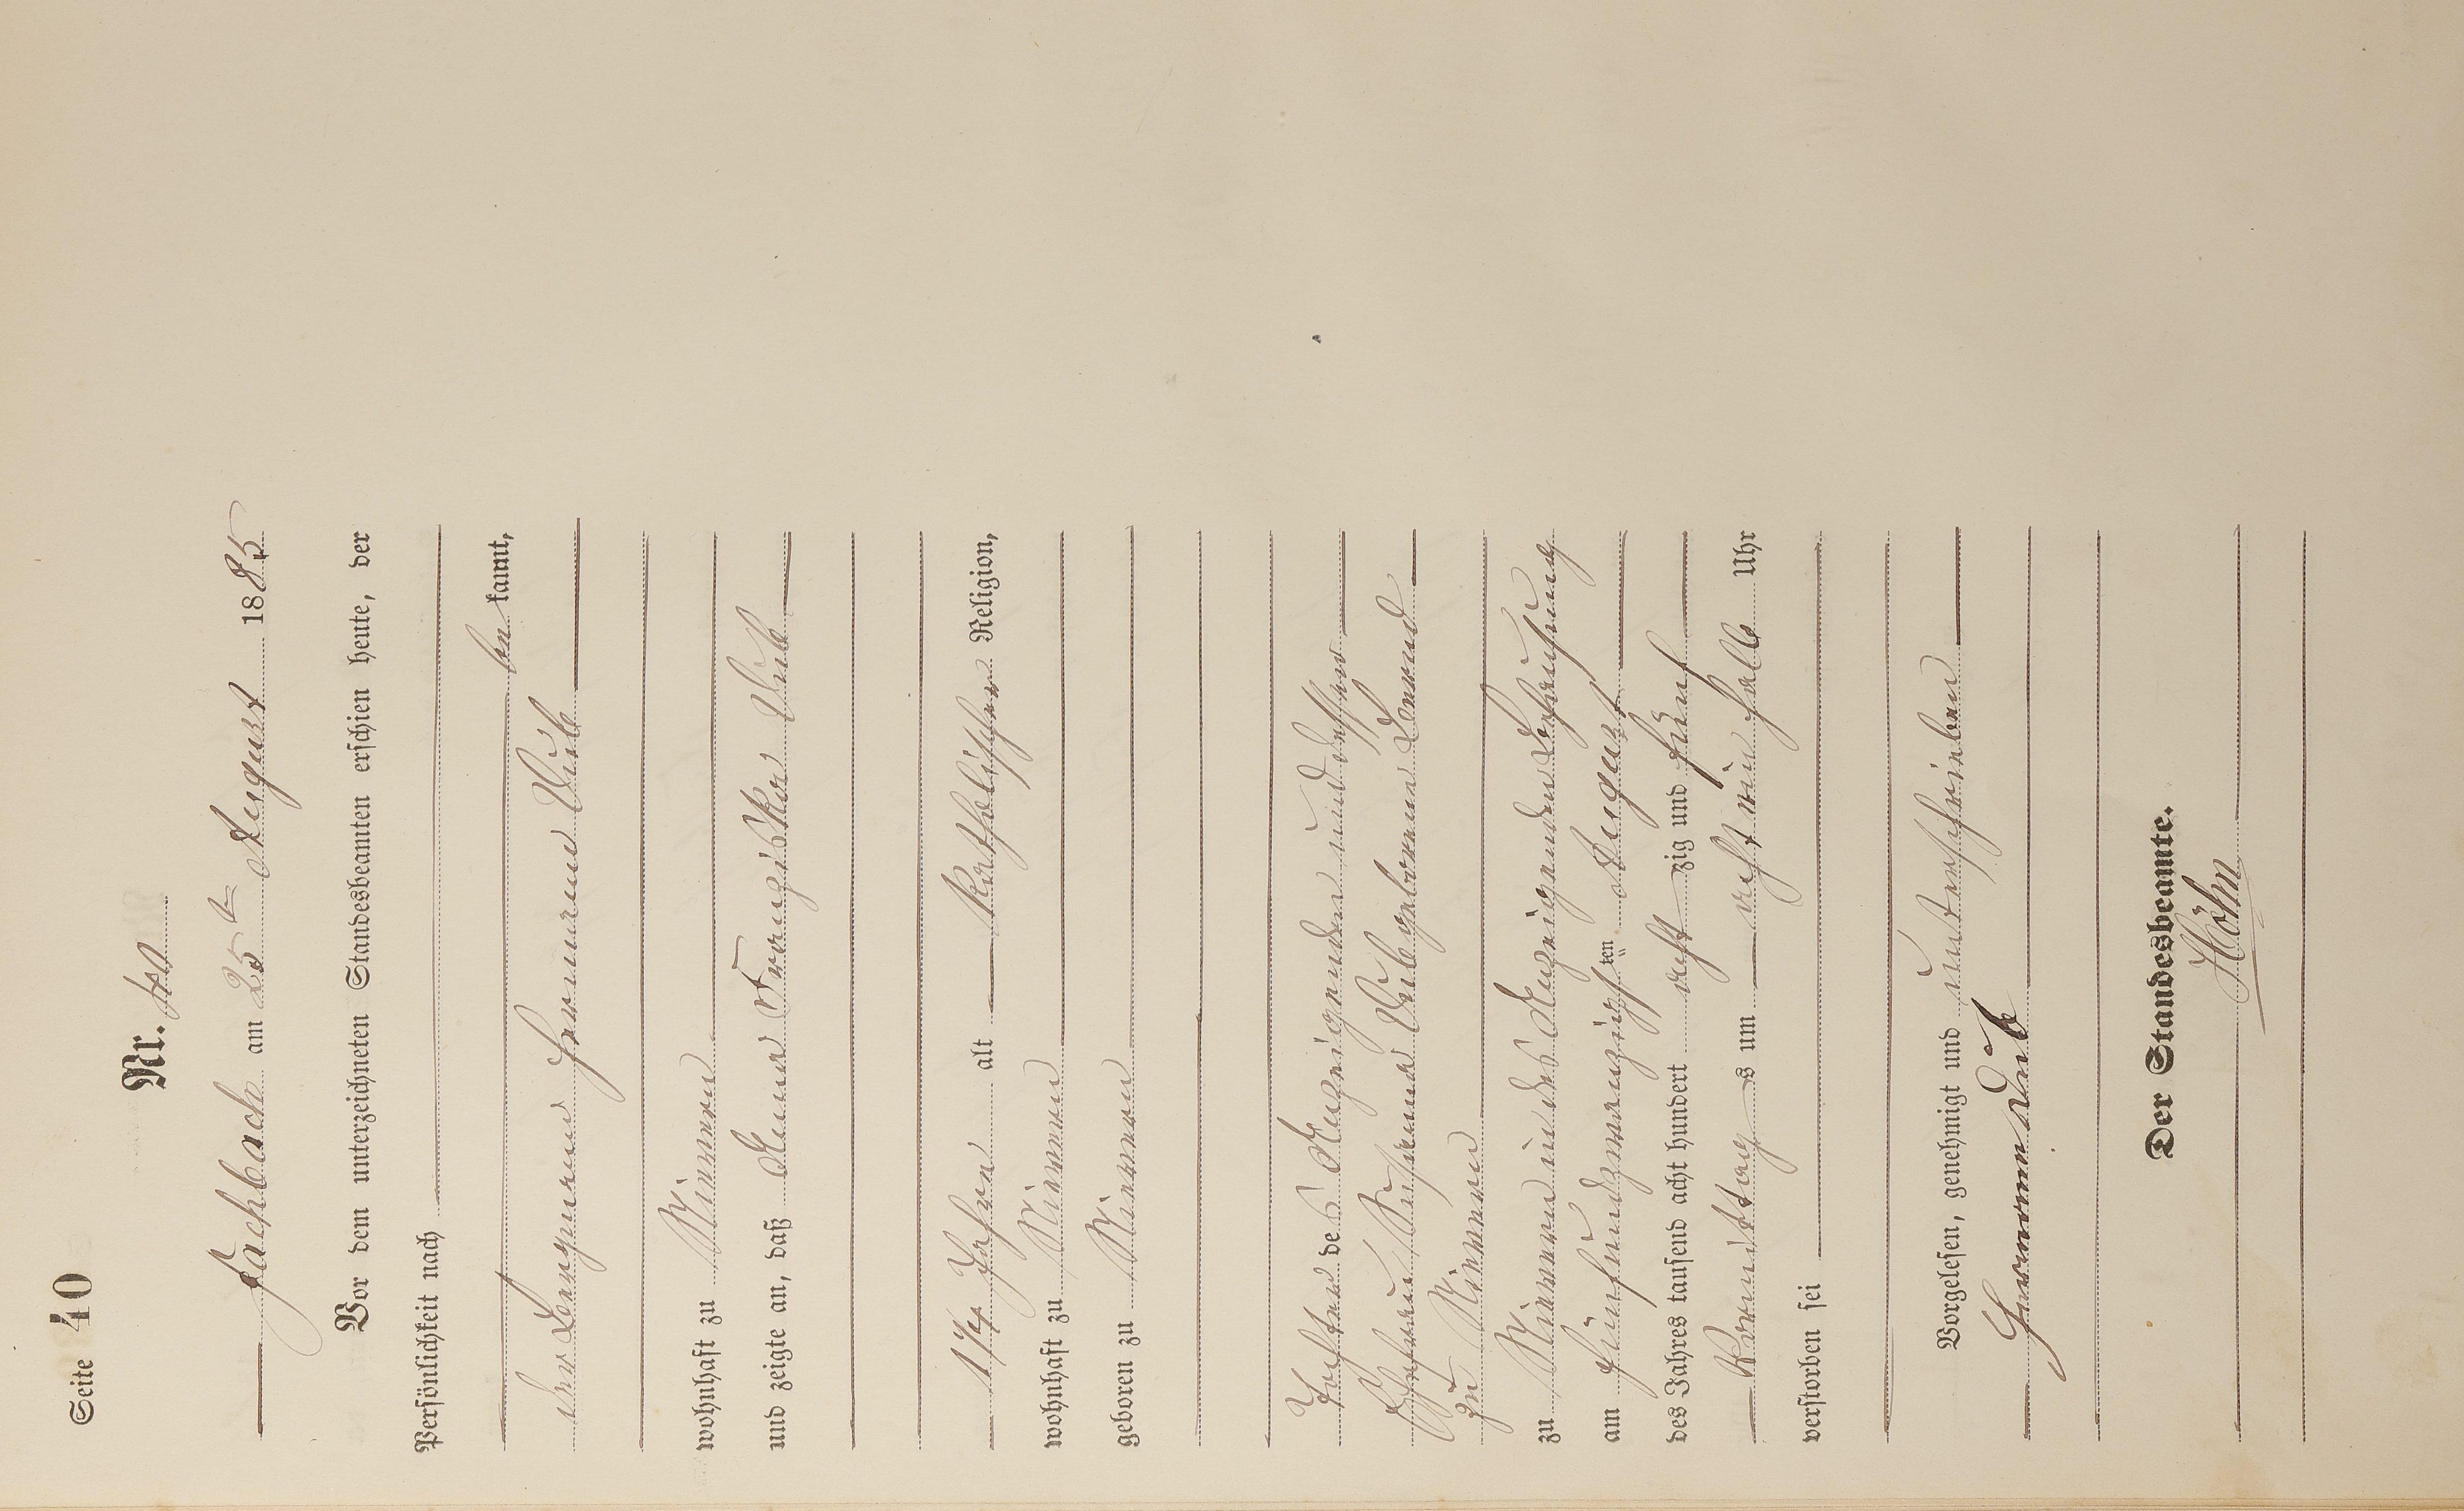 Seite 40
Nr. 40
Fachbach am 25t August 1885
Vor dem unterzeichneten Standesbeamten erschien heute, der
Persönlichkeit nach
be kannt,
der Bergmann Hermann Veit
wohnhaft zu Nievern
und zeigte an, daß Anna Franziska Veit
Jahre alt katholischer Religion,
wohnhaft zu Nievern
geboren zu Nievern
Tochter des Anzeigenden und dessen
Ehefrau Veit geborene
zu Nievern
zu Nievern in des Anzeigenden Behausung
am fünfundzwanzigsten August
des Jahres tausend acht hundert acht zig und fünf
Vormittag s um acht ein halb Uhr
verstorben sei
Vorgelesen, genehmigt und unterschrieben
Hermann Veit
Der Standesbeamte.
Höhn